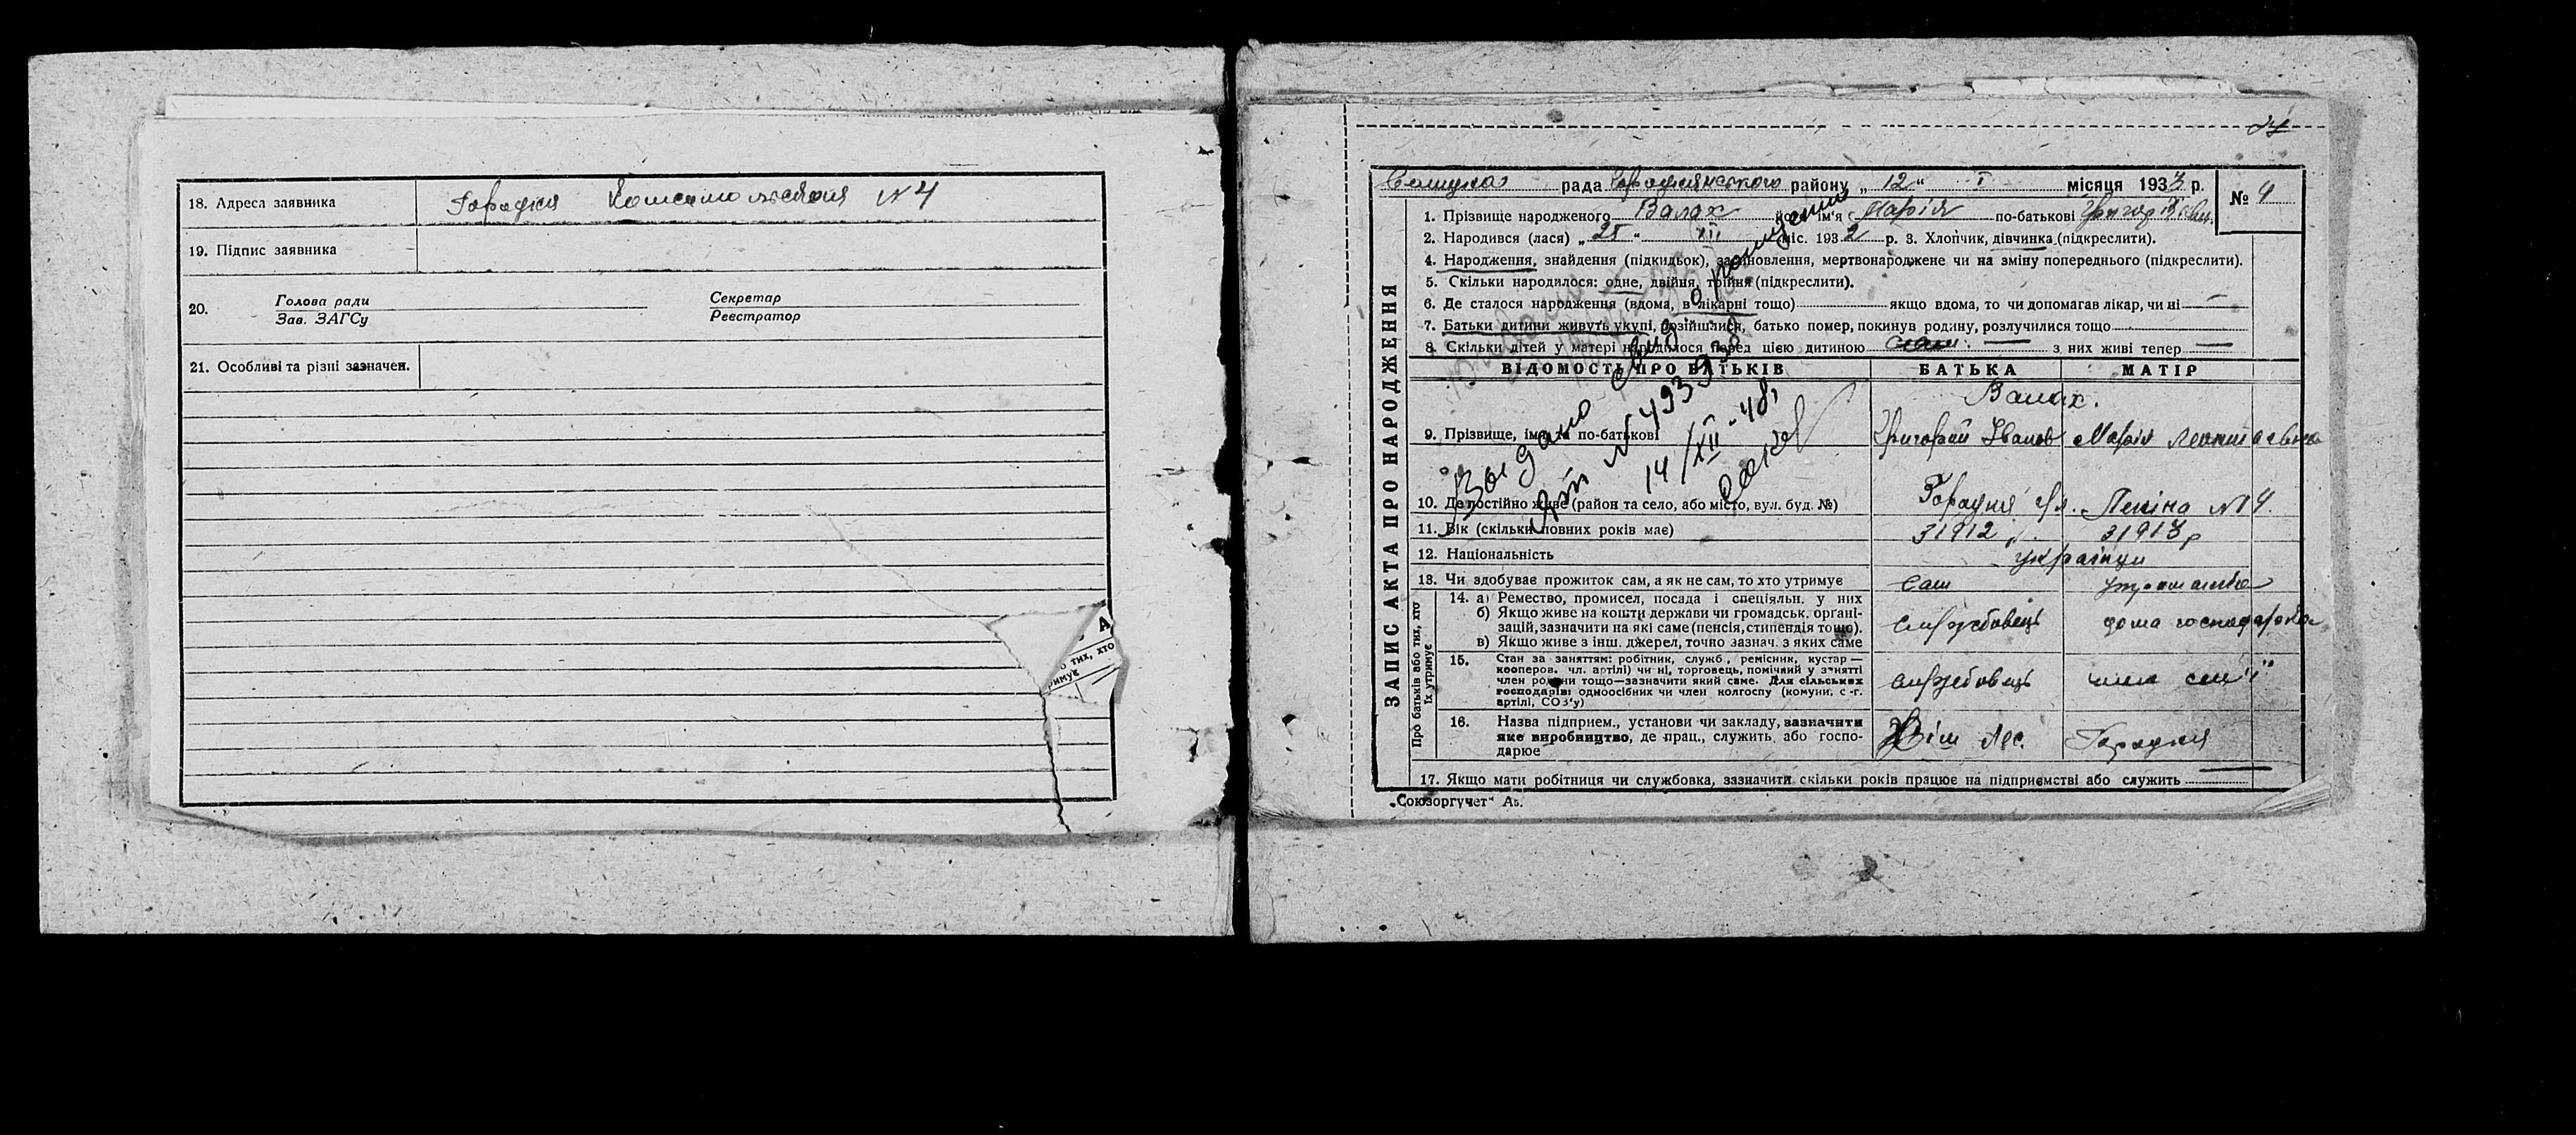 18. Адреса заявника Городня Комсомольская №4
19. Підпис заявника
20. Голова ради Секретар
Зав. ЗАГСу Реєстратор
21. Особливі та різні зазначен.
А
о тих, хто
римує
24
рада Городнянського району „ 12 “ I місяця 1933 р.
№ 4
1. Прізвище народженого Валах його ім'я Марія по-батькові
2. Народився (лася) „ 25 “ XII міс. 1932 р. 3. Хлопчик, дівчинка (підкреслити).
4. Народження, знайдення (підкидьок), заповнення, мертвонароджене чи на зміну попереднього (підкреслити).
5. Скільки народилося: одне, двійня, трійня (підкреслити).
6. Де сталося народження (вдома, в лікарні тощо) — якщо вдома, то чи допомагав лікар, чи ні —
7. Батьки дитини живуть укупі, розійшлися, батько помер, покинув родину, розлучилися тощо
8. Скільки дітей у матері народилося перед цією дитиною — з них живі тепер —
ЗАПИС АКТА ПРО НАРОДЖЕННЯ
ВІДОМОСТЬ ПРО БАТЬКІВ БАТЬКА МАТІР
Валах.
9. Прізвище, ім'я та по-батькові Григорий Іванов Марія
10. Де постійно живе (район та село, або місто, вул. буд. №) Городня ул. Леніна №14.
11. Вік (скільки повних років має) з 1912 р. з 1913 р
12. Національність українци
13. Чи здобуває прожиток сам, а як не сам, то хто утримує сам
Про батьків або тих, хто
їх утримує
14. а) Ремество, промисел, посада і спеціяльн. у них
б) Якщо живе на кошти держави чи громадськ. органі-
зацій, зазначити на які саме (пенсія, стипендія тощо).
в) Якщо живе з інш. джерел, точно зазнач. з яких саме
службовець дома господарка
15. Стан за заняттям: робітник, служб., ремісник, кустар —
кооперов. чл. артілі) чи ні, торговець, помічний у занятті
член родини тощо—зазначити який саме. Для сільських
господарів: одноосібних чи член колгоспу (комуни, с.-г.
артілі, СОЗ'у)
службовець член сем'ї
16. Назва підприєм., установи чи закладу, зазначити
яке виробництво, де прац., служить або госпо-
дарює
Городня
17. Якщо мати робітниця чи службовка, зазначити скільки років працює на підприємстві або служить —
„Союзоргучет“
Выдано свид о рождении
14/XII-48